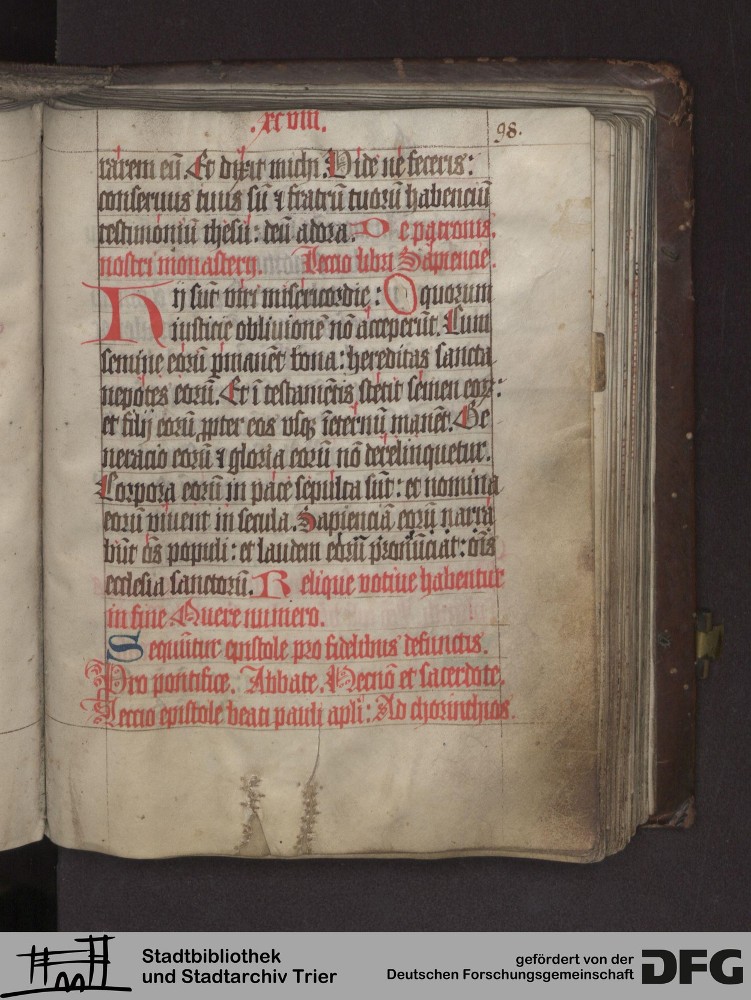 .xcviii.
98.
rarem eū. Et dixit michi. Vide ne feceris:
conseruus tuus sū ⁊ fratrū tuorū habenciū
testimoniū ihesu: deū adora. De patronis.
nostri monasterij. Leccio libri Sapiencie.
Hij sūt viri misericordie: Quorum
iusticie obliuionē nō acceperūt. Cum
semine eorū ꝑmanēt bona: hereditas sancta
nepotes eorū. Et ī testamētis stetit semen eoꝝ:
et filij eorū ꝓpter eos vsqꝫ īeternū manēt. Ge
neracio eorū ⁊ gloria eorū nō derelinquetur.
Corpora eorū in pace sepulta sūt: et nomina
eorū viuent in secula. Sapienciā eorū narrā
būt oēs populi: et laudem eorū pronūciat: oīs
ecclesia sanctorū. Relique votiue habentur
in fine Quere numero.
Sequūtur epistole pro fidelibus defunctis.
Pro pontifice. Abbate. Necnō et sacerdote.
Leccio epistole beati pauli apli: Ad chorinthios.
Stadtbibliothek
und Stadtarchiv Trier
gefördert von der
Deutschen Forschungsgemeinschaft
DFG